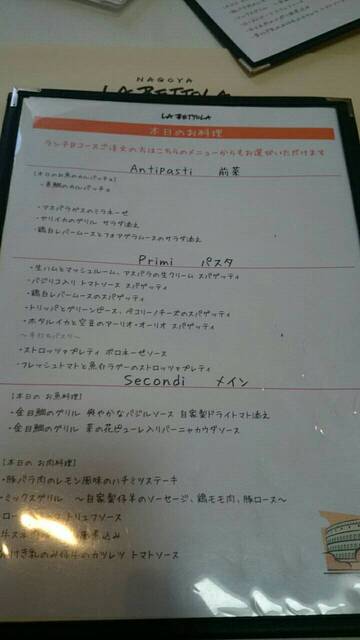 NAGOYA
LA BETTOLA
LA BETTOLA
本日のお料理
ランチBコースご注文の方はこちらのメニューからもお選びいただけます
Antipasti 前菜
【本日のお魚のカルパッチョ】
・真鯛のカルパッチョ
・アスパラガスのミラネーゼ
・ヤリイカのグリル サラダ添え
・鶏白レバームースとフォアグラムースのサラダ添え
Primi パスタ
・生ハムとマッシュルーム、アスパラの生クリーム スパゲッティ
・バジリコ入り トマトソース スパゲッティ
・鶏白レバームースのスパゲッティ
・トリッパとグリーンピース、ペコリーノチーズのスパゲッティ
・ホタルイカと空豆のアーリオ・オーリオ スパゲッティ
～手打ちパスタ～
・ストロッツァプレティ ボロネーゼソース
・フレッシュトマトと魚介ラグーのストロッツァプレティ
Secondi メイン
【本日の お魚料理】
・金目鯛のグリル 爽やかなバジルソース 自家製ドライトマト添え
・金目鯛のグリル 菜の花ピューレ入りバーニャカウダソース
【本日の お肉料理】
・豚バラ肉のレモン風味のハチミツステーキ
・ミックスグリル ～自家製仔羊のソーセージ、鶏モモ肉、豚ロース～
トリュフソース
煮込み
付き乳のみ仔牛のカツレツ トマトソース